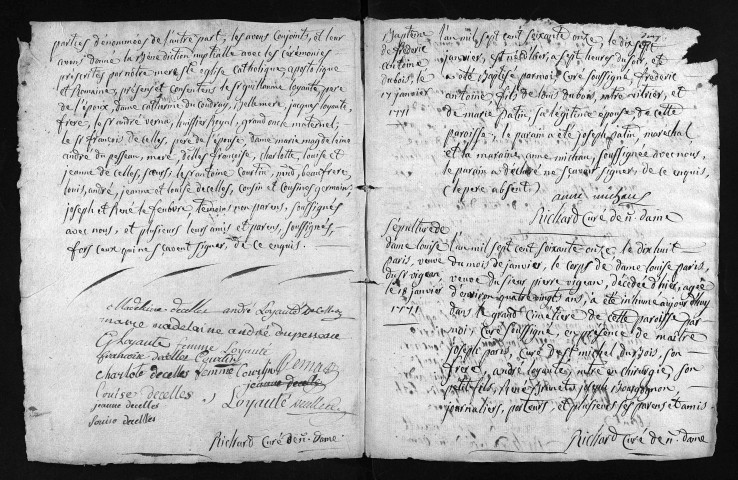 parties dénommées de l'autre part, les avons conjoints, et leur
avons donné la Bénédiction nuptialle avec les cérémonies
prescrites par notre mere Ste eglise Catholique, apostolique
et Romaine, présens et consentens le Sr guillaume loyauté, pere
de l'époux, dame catherine du coudray, bellemere, jacques loyauté
frere, le Sr andré verna, huissier Royal, grand oncle maternel;
le Sr francois decelles, pere de l'épouse, dame marie magdeleine
andré du posseau, mere, dlles francoise, charlotte, louise et
jeanne de celles, sœurs, le Sr antoine courtin, beaufrere,
louis, andré, jeanne et louise decelles, cousin et cousines germains;
joseph et René le febvre, temoins non parens, soussignés
avec nous, et plusieurs leurs amis et parens, soussignés,
fors ceux qui ne scavent signer, de ce enquis.
Madeleine decelles andré Loyauté
marie madelaine andré duposseau
G Loyauté femme Loyauté
francoise decelles Courtin
charlote decelles femme Courtin
jeanne decelles
Louise decelles Loyauté
jeanne decelles
Louise decelles
Richard Curé de N. dame
Baptême
de frédéric
antoine
dubois, le
17 janvier
1771
l'an mil sept cent soixante onze, le dix sept
janvier, est né d'hier, a sept heures du soir, et
a été baptisé par moi Curé soussigné, frédéric
antoine fils de louis dubois, vitrier, et
de marie patin, sa légitime epouse de cette
paroisse; le parain a été joseph patin, marechal,
et la maraine anne michau, soussignée avec nous,
le parain a déclaré ne scavoir signer, de ce enquis,
(le pere absent)
anne michaus
Richard Curé de N. dame
Sépulture de
dame louise
paris, veuve
du Sr vigean
le 18 janvier
1771
l'an mil sept cent soixante onze, le dixhuit
du mois de janvier, le corps de dame louise paris,
veuve du sieur pierre vigean, décédée d'hier, agée
d'environ quatre vingts ans, a été inhumé aujourd'huy
dans le grand cimetiere de cette paroisse par
moi Curé soussigné, en presence de maitre
joseph paris, Curé de St michel du bois, son
frere, andré loyauté, en chirurgie, son
petit fils, René et joseph Bourgignon,
journaliers, porteurs, et plusieurs ses parens et amis.
Richard Curé de N. dame